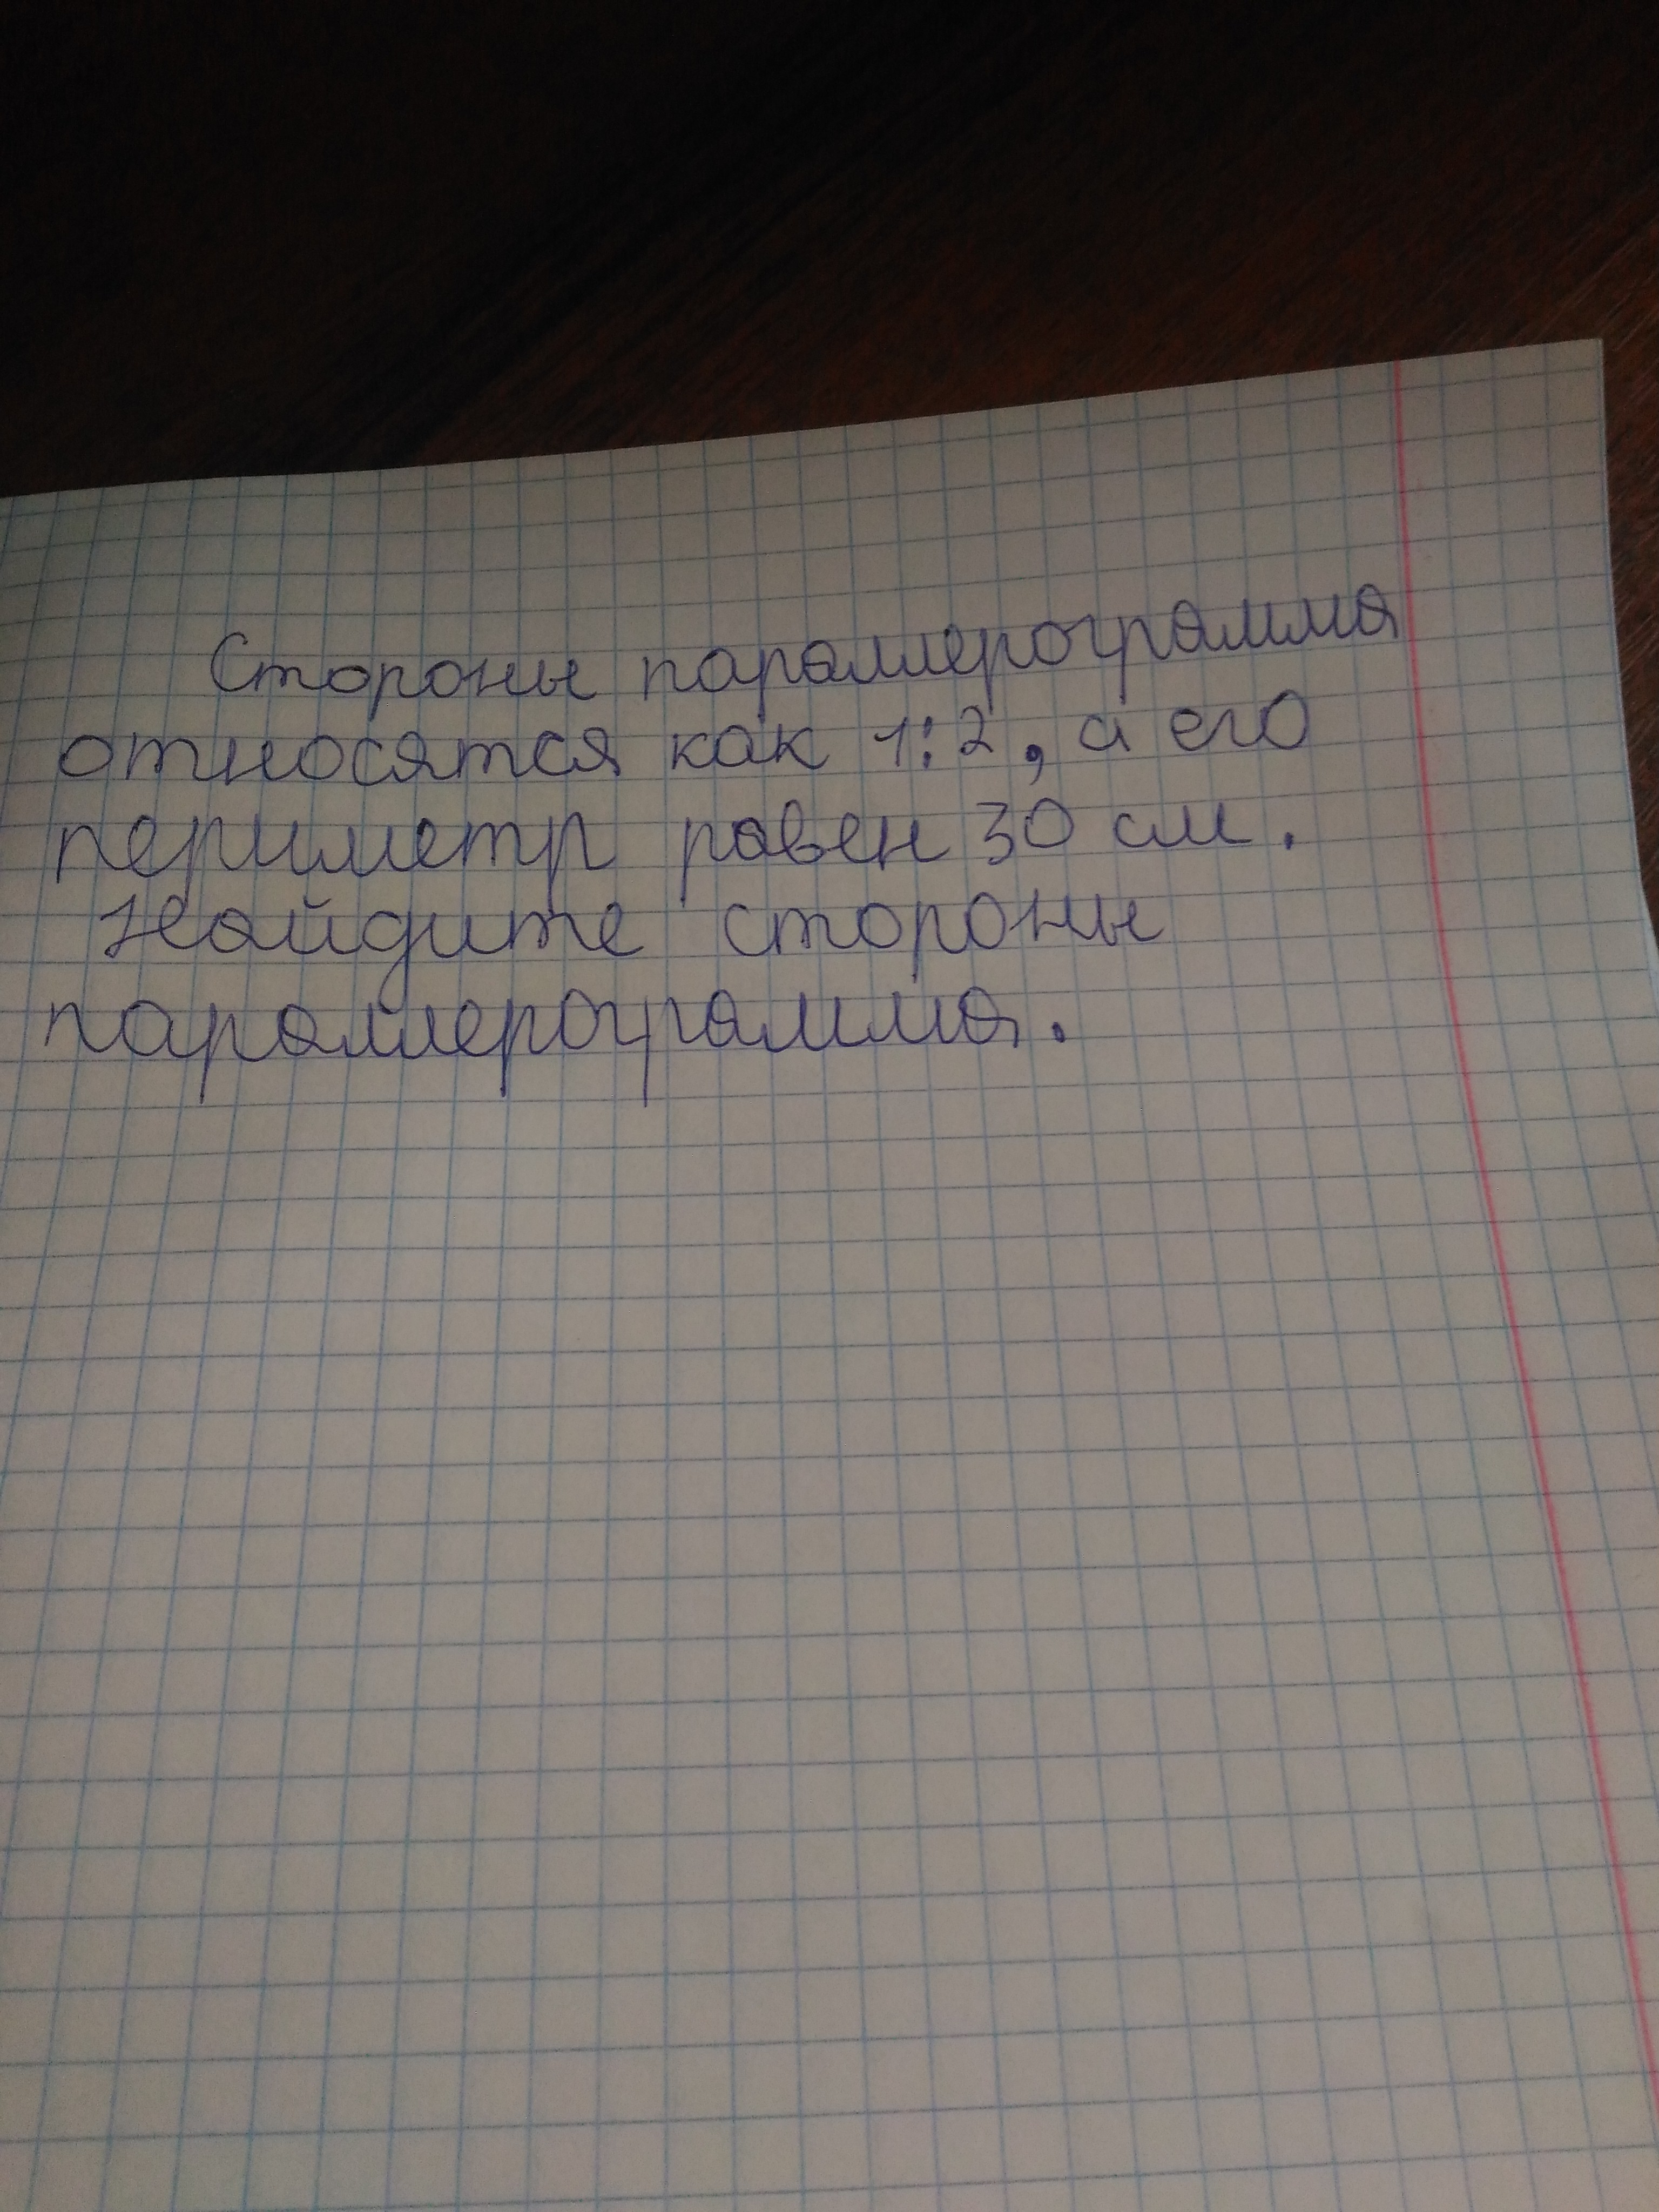 Стороны параллерограмма
относятся как 1:2, а его
периметр равен 30 см.
Найдите стороны
параллерограмма.